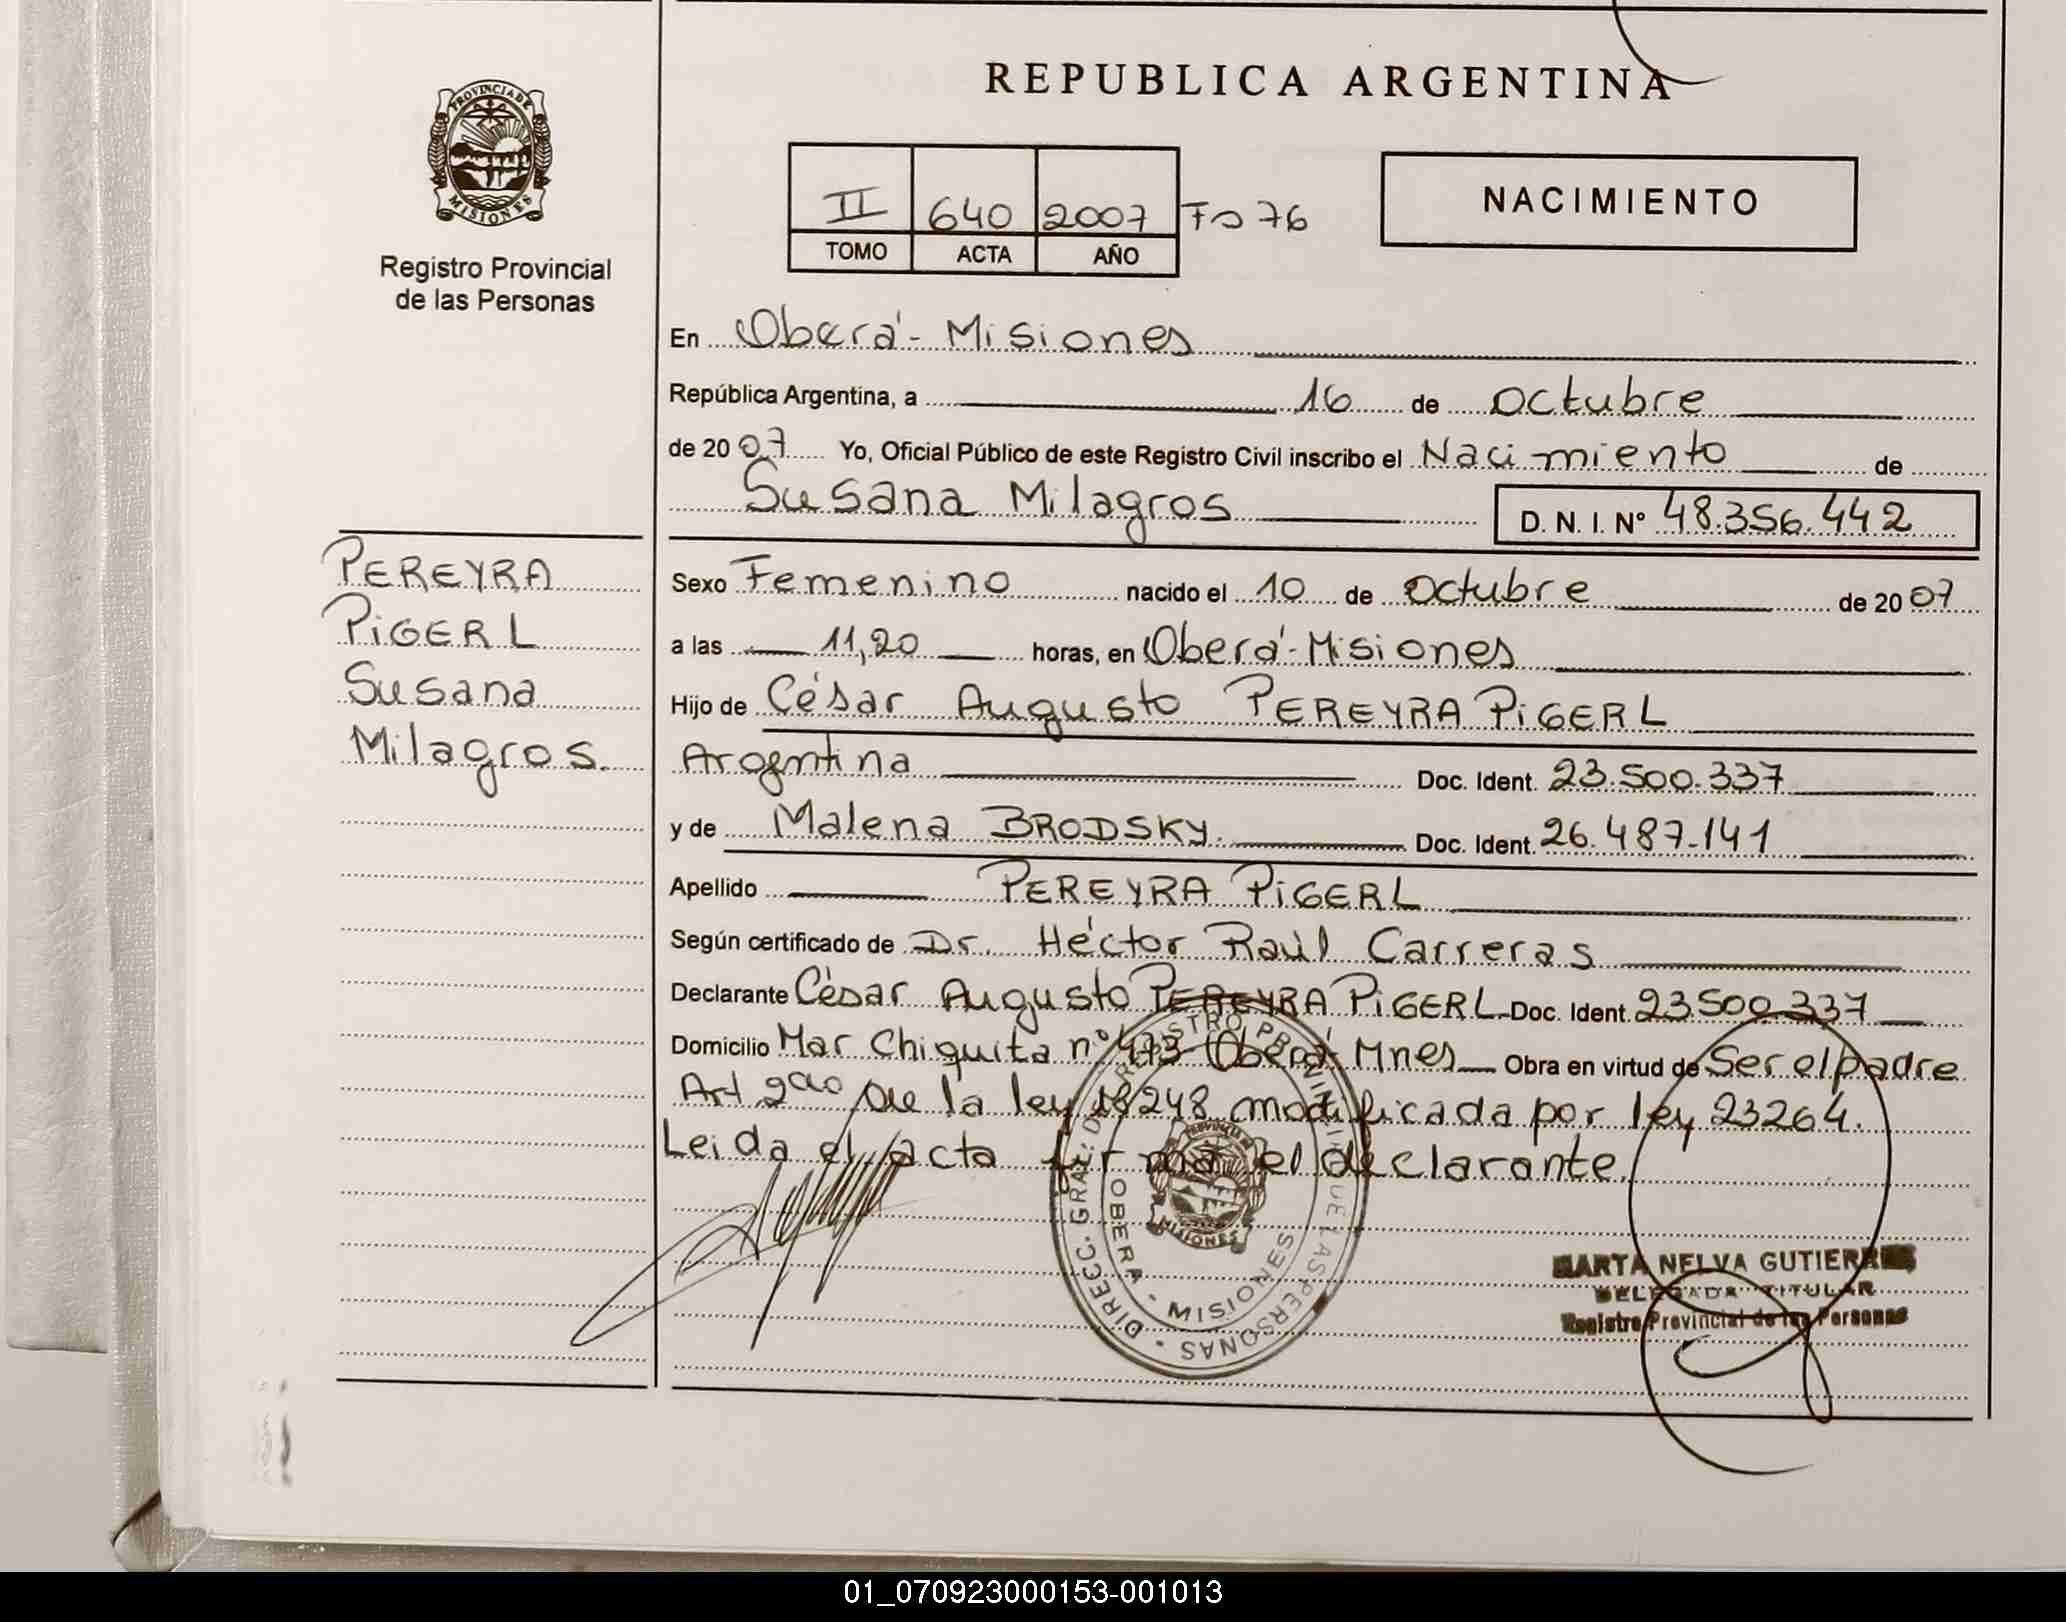 REPUBLICA ARGENTINA
PROVINCIA DE
MISIONES
Registro Provincial
de las Personas
II 640 2007 Fo 76
TOMO ACTA AÑO
NACIMIENTO
En Oberá - Misiones
República Argentina, a 16 de octubre
de 2007 Yo, Oficial Público de este Registro Civil inscribo el Nacimiento de
Susana Milagros D. N. I. Nº 48.356.442
PEREYRA
PiGERL
Susana
Milagros.
Sexo Femenino nacido el 10 de octubre de 2007
a las 11,20 horas, en Oberá - Misiones
Hijo de César Augusto PEREYRA PiGERL
Argentina Doc. Ident. 23.500.337
y de Malena BRODSKY. Doc. Ident. 26.487.141
Apellido PEREYRA PiGERL
Según certificado de Dr. Héctor Raúl Carreras
Declarante César Augusto PEREYRA PiGERL Doc. Ident. 23.500.337
Domicilio Mar Chiquita nº 473 Oberá Mnes Obra en virtud de Ser el padre
Art 2do de la ley 18248 modificada por ley 23264.
Leida el acta firma el declarante.
DIRECC. GRAL. DE REGISTRO PROVINCIAL DE LAS PERSONAS
OBERA - MISIONES
MISIONES
MARTA NELVA GUTIERRES
DELEGADA TITULAR
Registro Provincial de las Personas
01_070923000153-001013